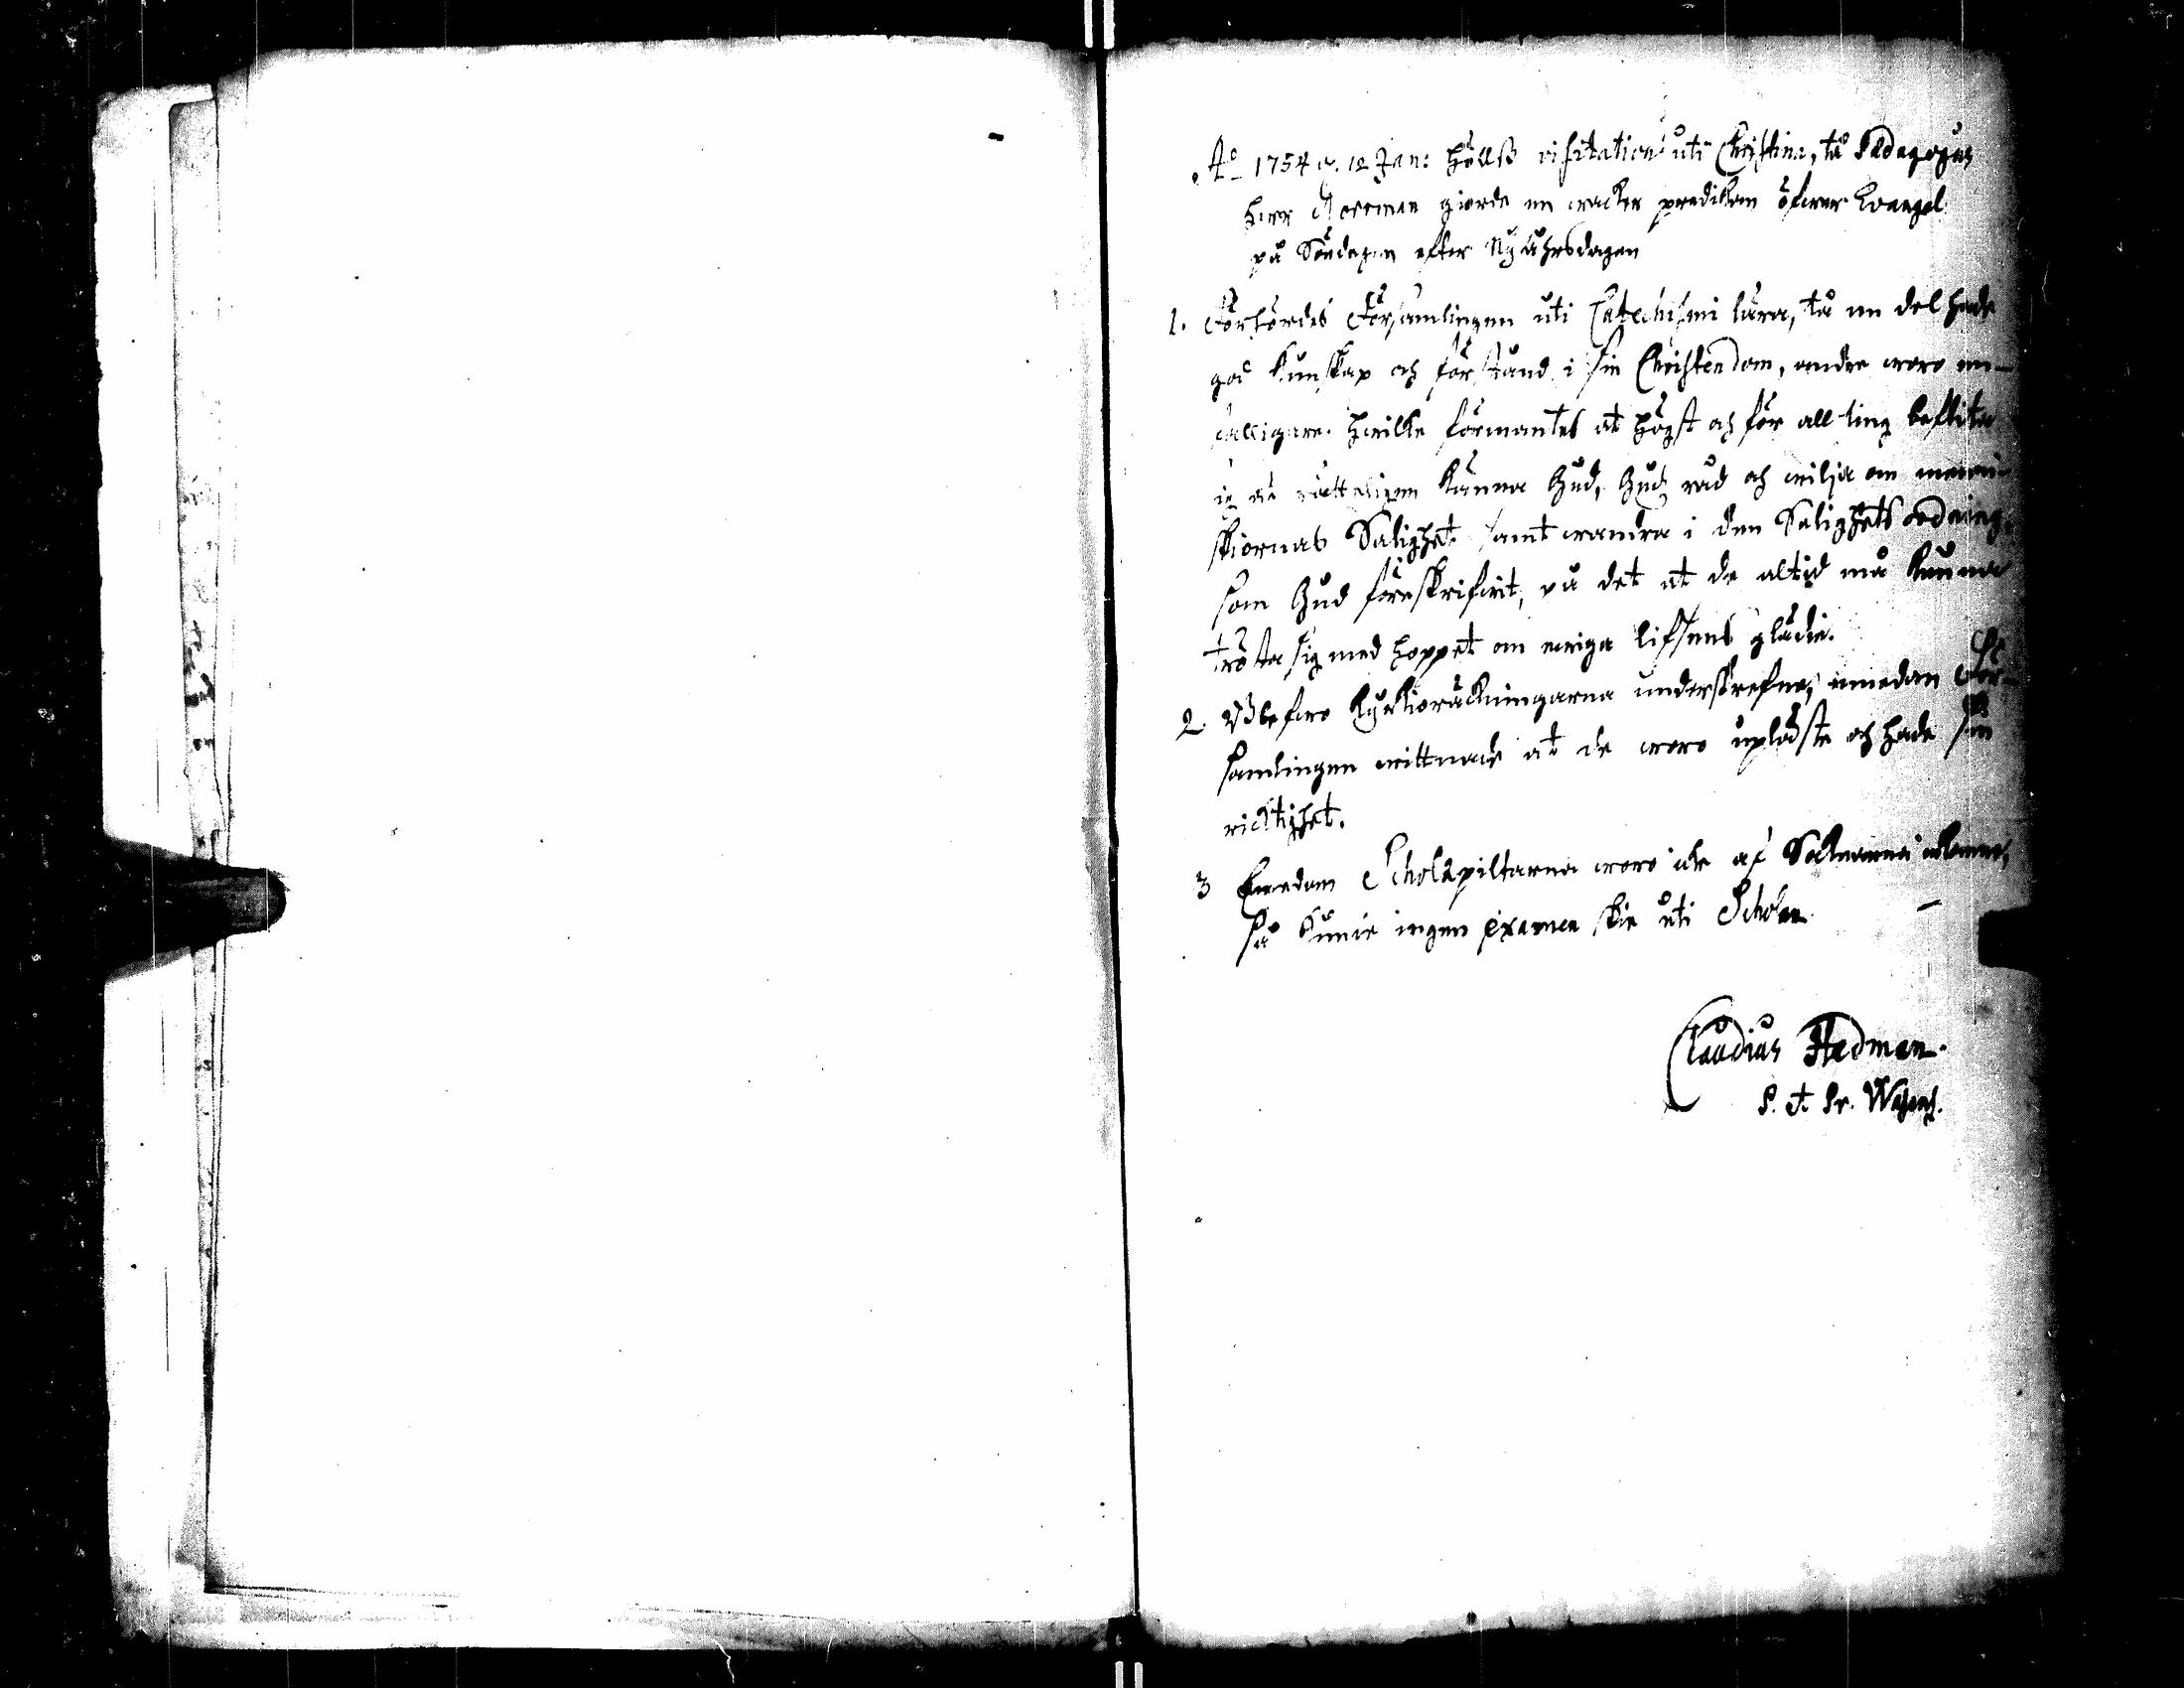 Ao 1754 d. 12 Jan: hölls visitation uti Christina, tå Pædagogus
herr Norrman giorde en wacker predikan öfwer Evangel.
på Söndagen efter Nyåhrsdagen
1. Förhördes Församlingen uti Catechismi lära, tå en del hade
god kunskap och förstånd i sin Christendom, andre woro en-
falligare. hwilka förmantes at högst och för all ting beflita
sig at rätteligen känna Gud, Guds råd och wilja om menni-
skiornas Salighet samt wandra i den Salighets ordning
som Gud föreskrifwit, på det at de altid må kunna
trösta sig med hoppet om ewiga lifsens glädie.
2. Blefwo Kyrkioräckningarna underskrefne, emedan För-
samlingen wittnade at de woro uplåste och hade sin
richtighet.
3 Emedan Scholæpiltarna woro icke af Socknarna
så kunde ingen examen skie uti Scholan.
Claudius Hedman.
P. et Pr.